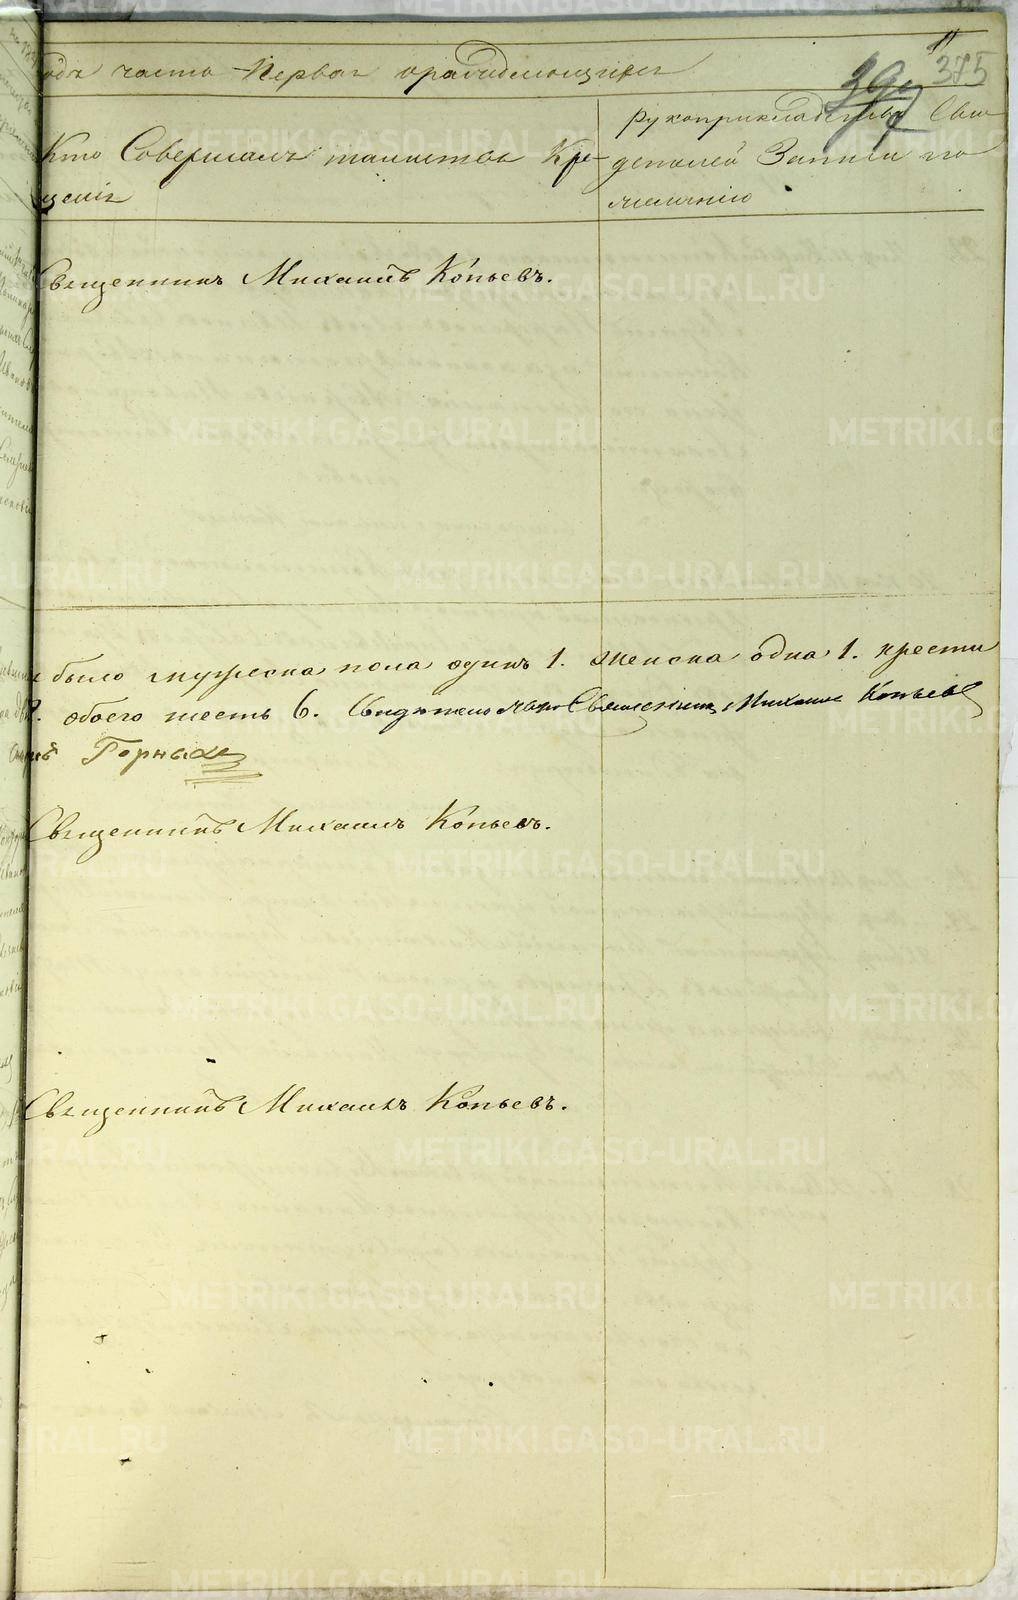 375
одъ часть Первая ораждающихся
Кто Совершалъ таинство Кре-
щенія
рукоприкладство Сви-
детелей Записи по
желанію
Священникъ Михаилъ Копьевъ.
было мужеска пола одинъ 1. женска одна 1. крести
обоего шесть 6. Священникъ Михаилъ Копьевъ
Горныхъ
Священникъ Михаилъ Копьевъ.
Священникъ Михаилъ Копьевъ.
METRIKI.GASO-URAL.RU